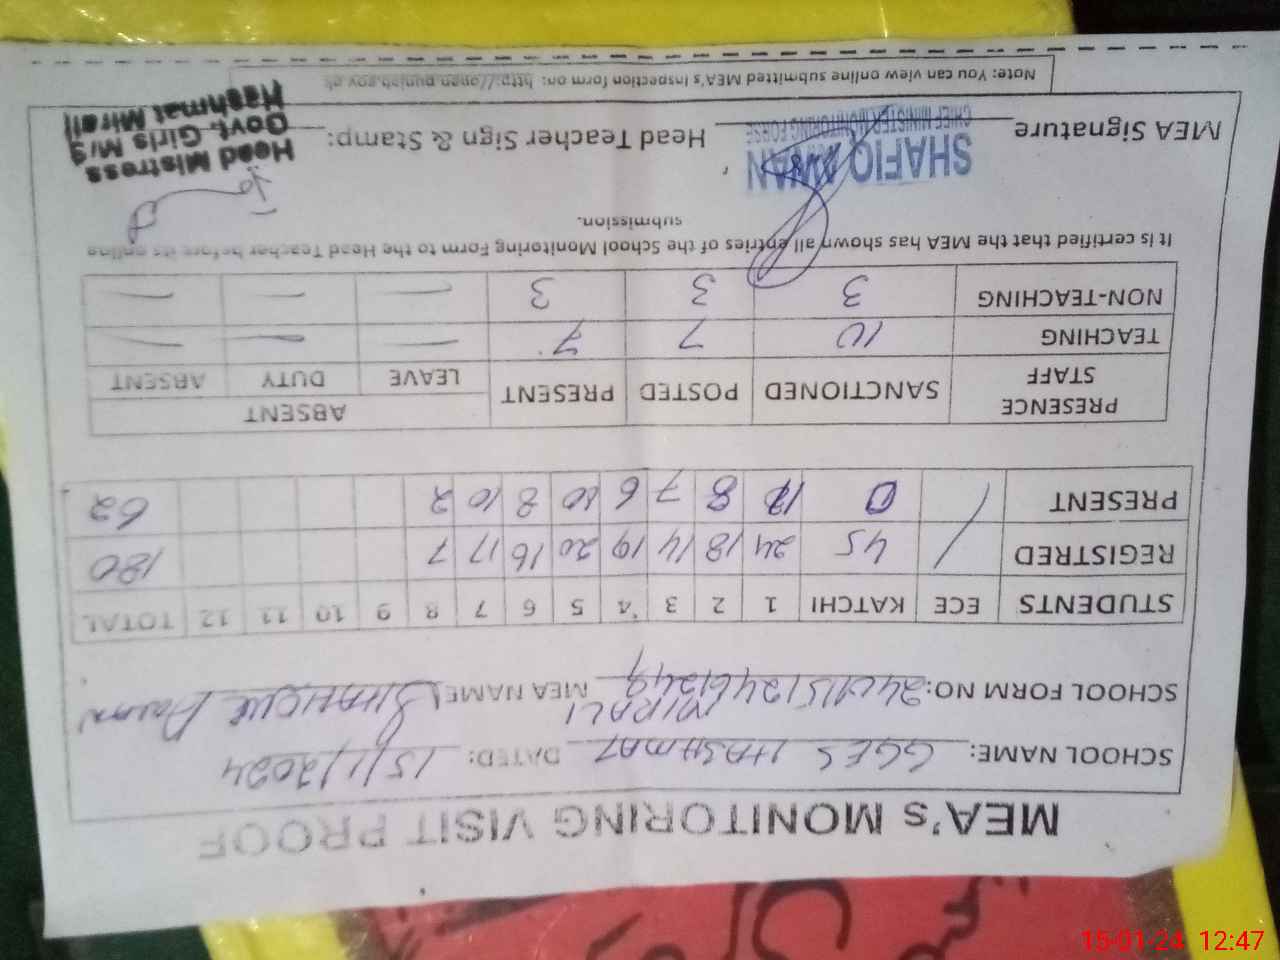 MEA's MONITORING VISIT PROOF
SCHOOL NAME: GGES HASHMAT MIRALI DATED: 15/1/2024
SCHOOL FORM NO: MEA NAME
STUDENTS ECE KATCHI 1 2 3 4 5 6 7 8 9 10 11 12 TOTAL
REGISTRED / 45 24 18 14 19 20 16 17 7 180
PRESENT / 0 8 7 6 10 8 10 2 62
PRESENCE STAFF SANCTIONED POSTED PRESENT ABSENT
LEAVE DUTY ABSENT
TEACHING 10 7 7 — — —
NON-TEACHING 3 3 3 — — —
It is certified that the MEA has shown all entries of the School Monitoring Form to the Head Teacher before its online
submission.
MEA Signature Head Teacher Sign & Stamp:
SHAFIQ AWAN
CHIEF MINISTER MONITORING FORSE
Head Mistress
Govt. Girls M/S
Hashmat Mirali
Note: You can view online submitted MEA's Inspection form on: http://open.punjab.gov.pk
15-01-24 12:47